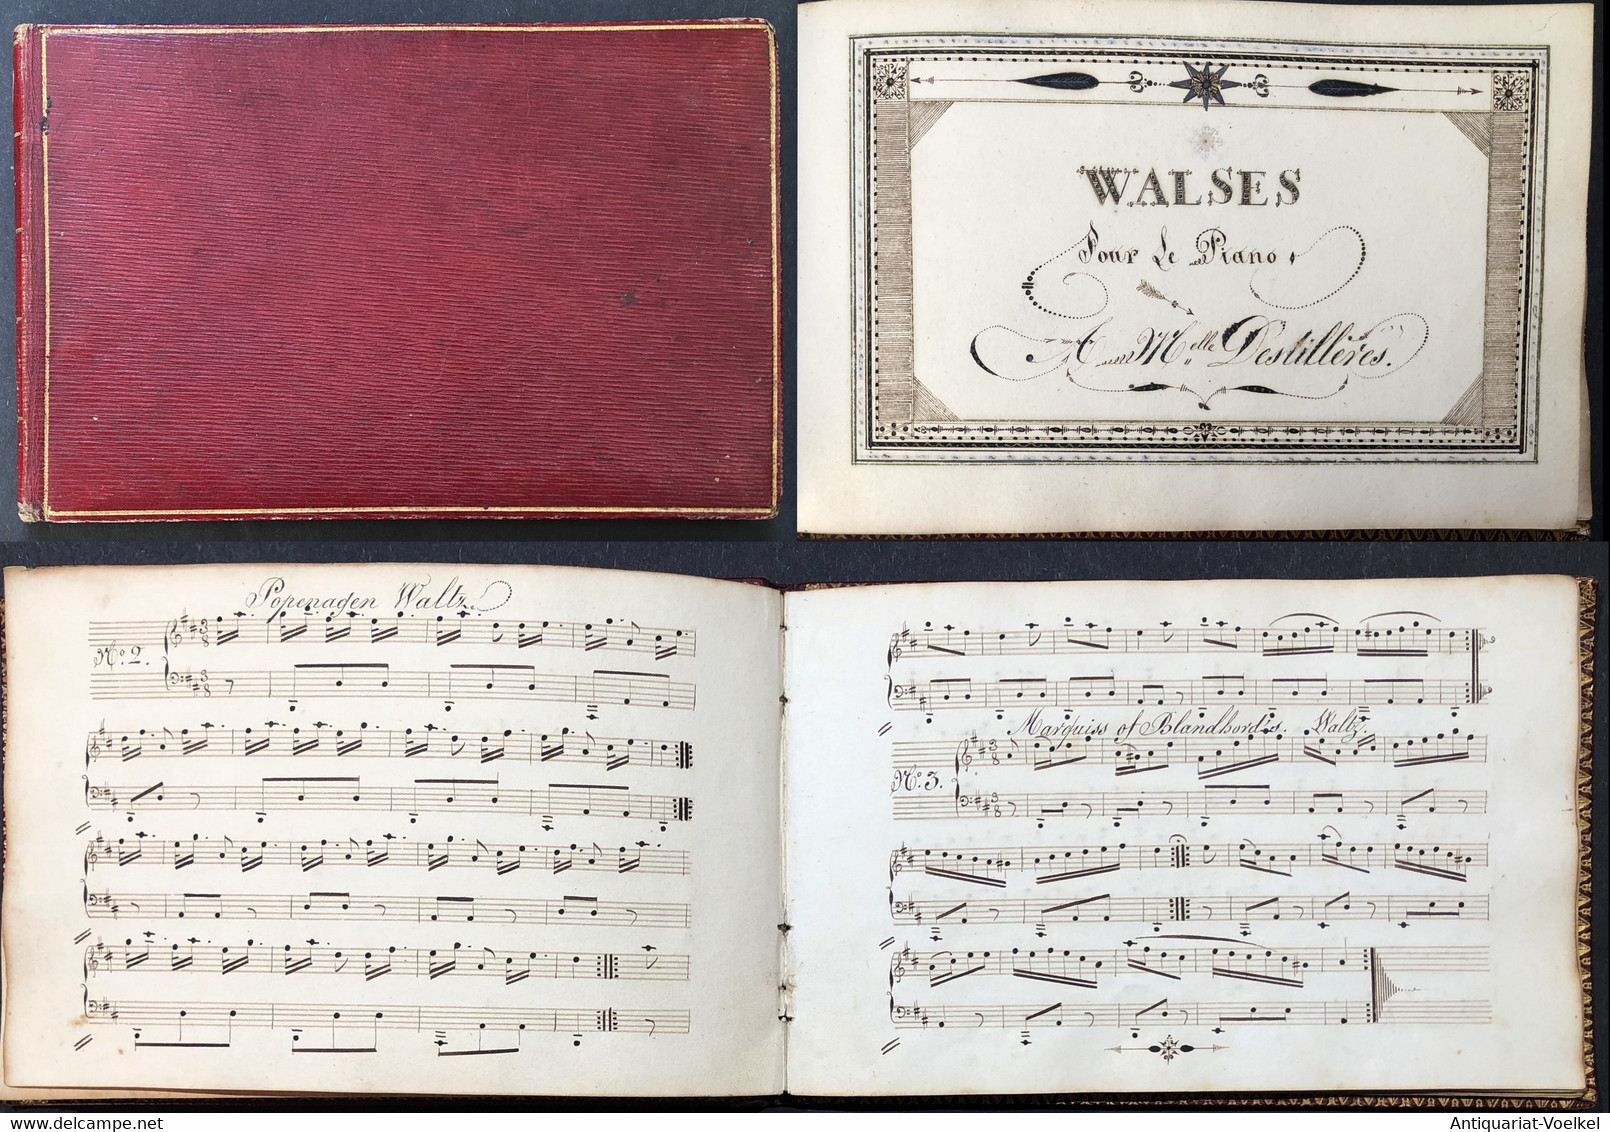 WALSES
Pour Le Piano
A M elle Destillères.
Popenagen Waltz.
No. 2.
3
8
3
8
Marquiss of Blandford's. Waltz.
No. 3.
3
8
3
8
www.delcampe.net
Antiquariat-Voelkel